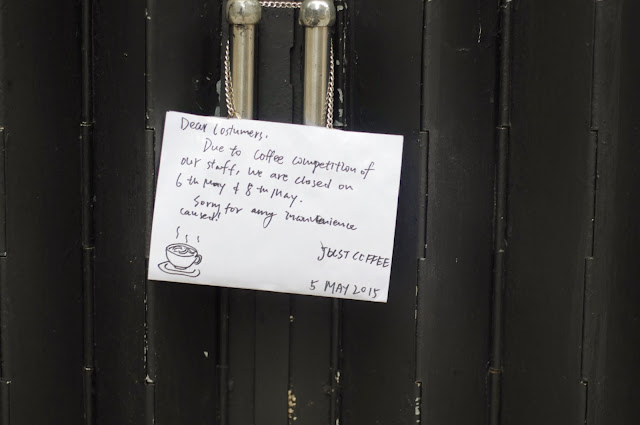 Dear Costumers,
Due to coffee competition of
our staff, we are closed on
6th May & 8th May.
Sorry for any inconvenience
caused!
JBEST COFFEE
5 MAY 2015